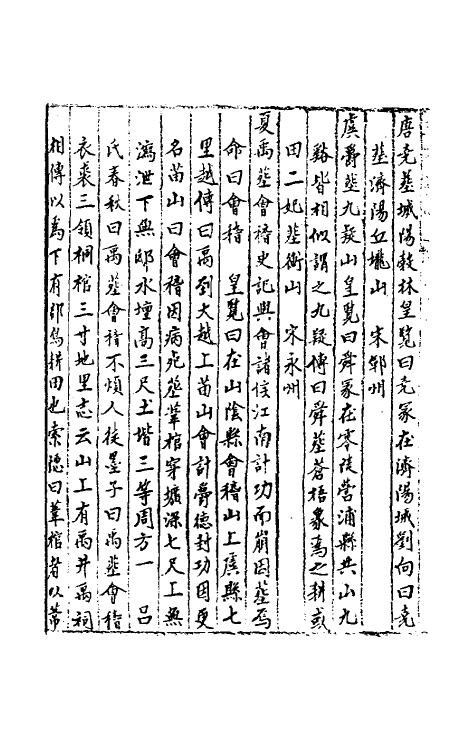 唐堯葬城陽穀林皇覽曰堯冢在濟陽城劉向曰堯
葬濟陽丘壠山　宋鄆州
虞舜葬九疑山皇覽曰舜冢在零陵營浦縣其山九
谿皆相似謂之九疑傳曰舜葬蒼梧象爲之耕或
曰二妃葬衡山　宋永州
夏禹葬會稽史記與會諸侯江南計功而崩因葬焉
命曰會稽　皇覽曰在山陰縣會稽山上虞縣七
里越傳曰禹到大越上苗山會計爵德封功因更
名苗山曰會稽因病死葬葦棺穿壙深七尺上無
瀉泄下無邸水壇高三尺土堦三等周方一　吕
氏春秋曰禹葬會稽不煩人徒墨子曰禹葬會稽
衣裘三領桐棺三寸地里志云山上有禹井禹祠
相傳以爲下有群鳥耕田也索隐曰葦棺者以葦